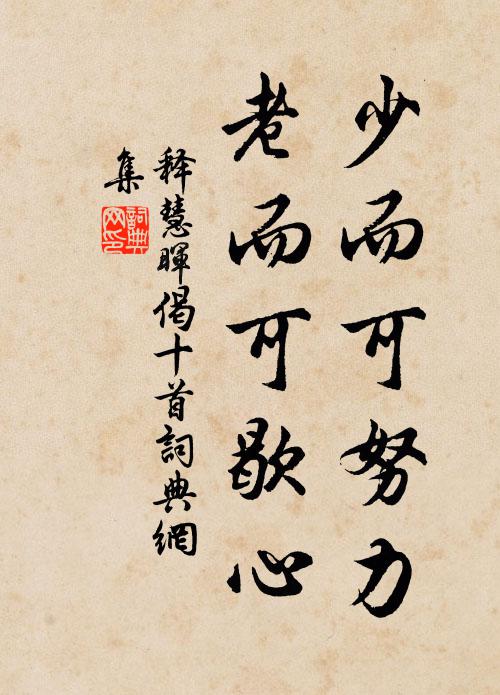 少而可努力
老而可歇心
释慧暉偈十首詞典網
集
詞典网印